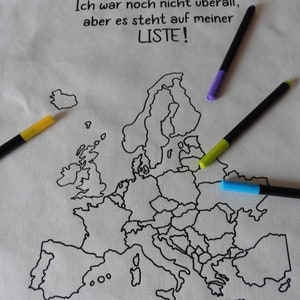 Ich war noch nicht überall,
aber es steht auf meiner
LISTE!